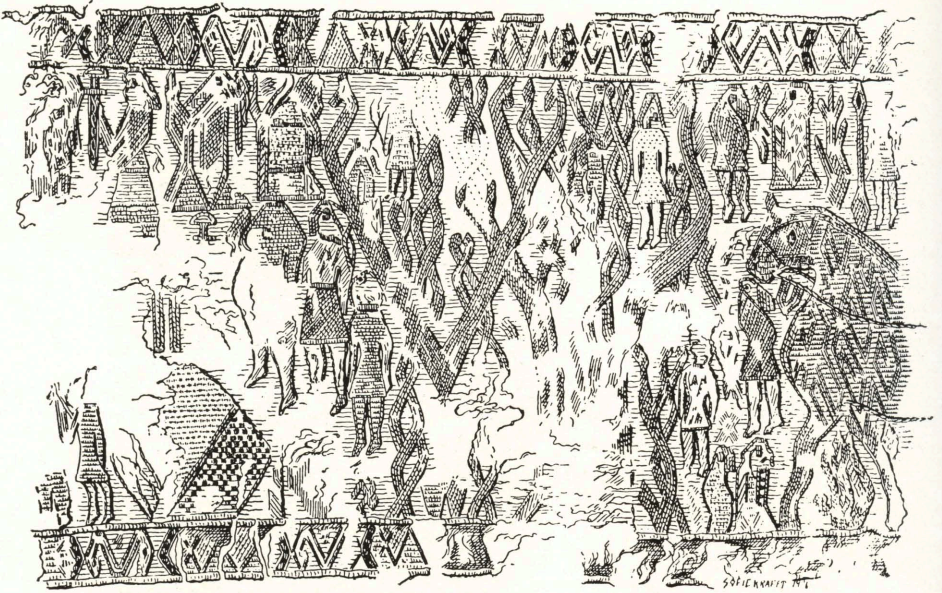 SOFIE KRAFFT